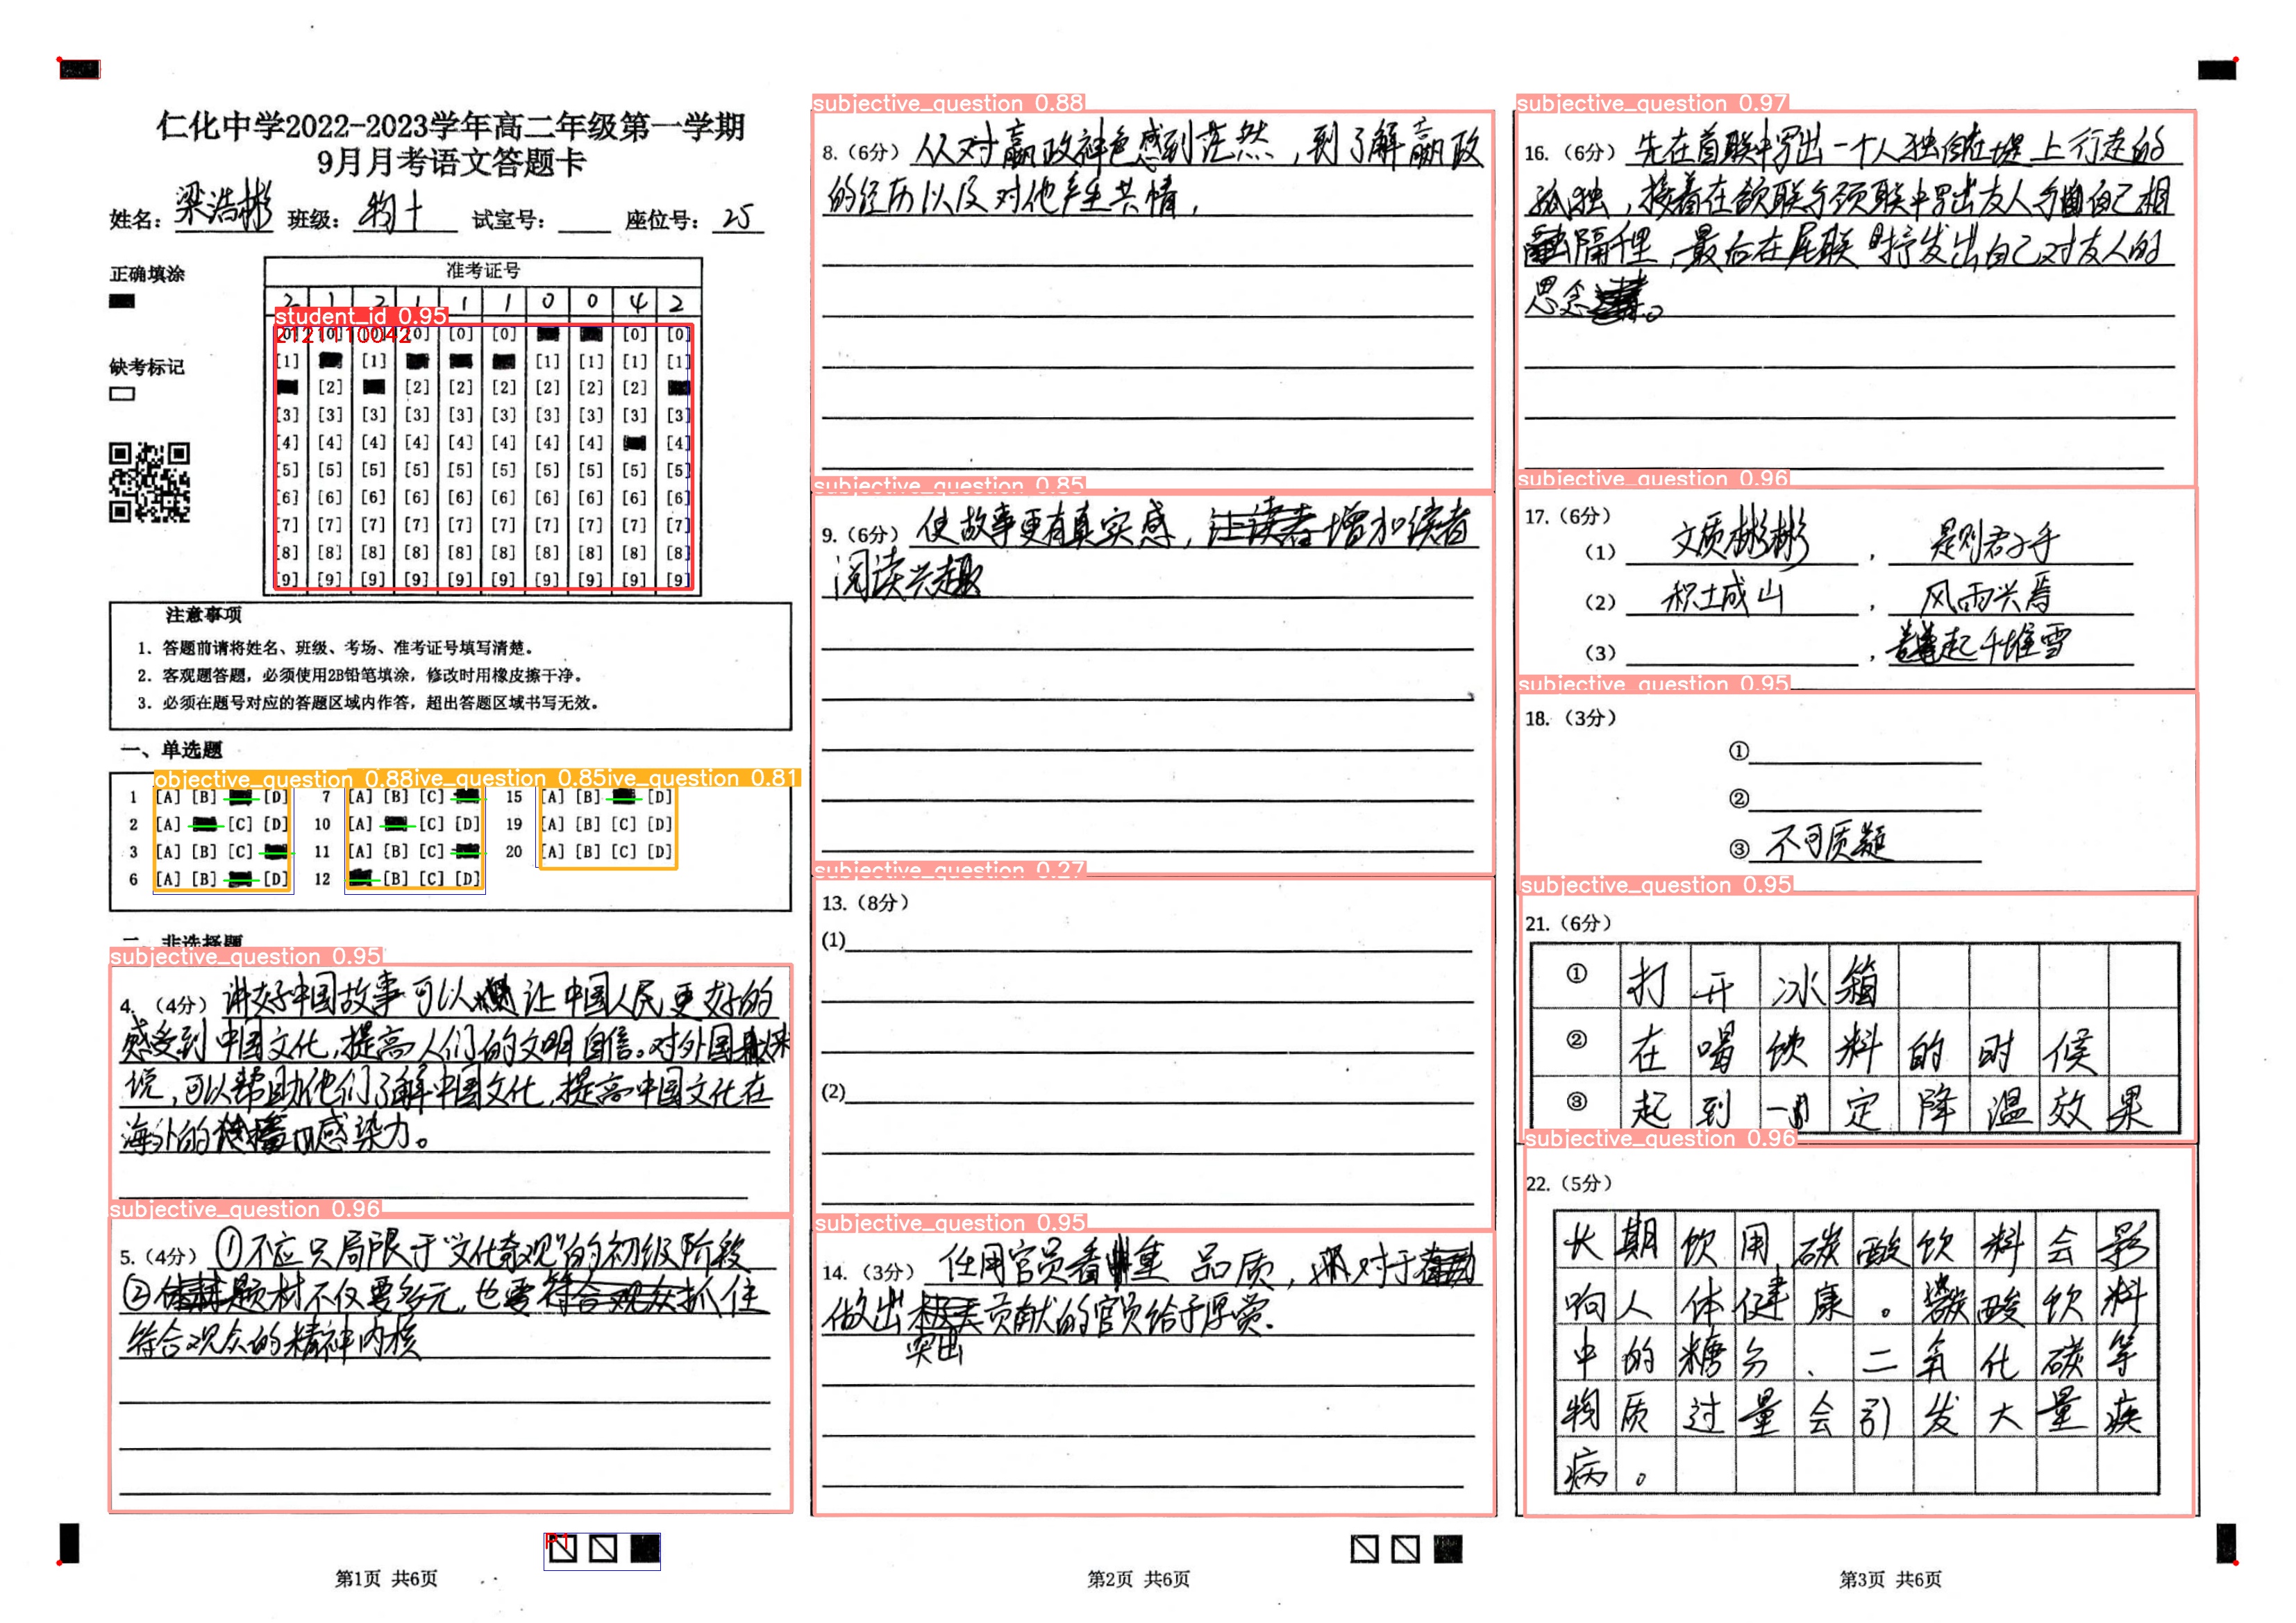 仁化中学2022-2023学年高二年级第一学期
9月月考语文答题卡
姓名: 梁浩彬 班级: 物十 试室号: 座位号: 25
正确填涂
缺考标记
准考证号
2 1 2 1 1 1 0 0 4 2
student_id 0.95
2121110042
[0] [0] [0] [0]
[1] [1] [1] [1] [1] [1]
[2] [2] [2] [2] [2] [2] [2]
[3] [3] [3] [3] [3] [3] [3] [3] [3] [3]
[4] [4] [4] [4] [4] [4] [4] [4] [4]
[5] [5] [5] [5] [5] [5] [5] [5] [5] [5]
[6] [6] [6] [6] [6] [6] [6] [6] [6] [6]
[7] [7] [7] [7] [7] [7] [7] [7] [7] [7]
[8] [8] [8] [8] [8] [8] [8] [8] [8] [8]
[9] [9] [9] [9] [9] [9] [9] [9] [9] [9]
注意事项
1. 答题前请将姓名、班级、考场、准考证号填写清楚。
2. 客观题答题，必须使用2B铅笔填涂，修改时用橡皮擦干净。
3. 必须在题号对应的答题区域内作答，超出答题区域书写无效。
一、单选题
objective_question 0.88 ive_question 0.85 ive_question 0.81
1 [A] [B] [D] 7 [A] [B] [C] 15 [A] [B] [D]
2 [A] [C] [D] 10 [A] [C] [D] 19 [A] [B] [C] [D]
3 [A] [B] [C] 11 [A] [B] [C] 20 [A] [B] [C] [D]
6 [A] [B] [D] 12 [B] [C] [D]
二、非选择题
subjective_question 0.95
4. （4分） 讲好中国故事可以让中国人民更好的
感受到中国文化,提高人们的文明自信。对外国来
说,可以帮助他们了解中国文化,提高中国文化在
海外的感染力。
subjective_question 0.96
5.（4分） ①不应只局限于“文化奇观”的初级阶段
②题材不仅要多元,也要符合观众抓住
符合观众的精神内核
P1
第1页 共6页
subjective_question 0.88
8.（6分） 从对嬴政神色感到茫然,到了解嬴政
的经历以及对他产生共情,
subjective_question 0.85
9.（6分） 使故事更有真实感,让读者增加读者
阅读兴趣
subjective_question 0.27
13.（8分）
(1)
(2)
subjective_question 0.95
14.（3分） 任用官员看重 品质, 对于
做出贡献的官员给予厚赏.
突出
第2页 共6页
subjective_question 0.97
16.（6分） 先在首联中写出一个人独自在堤上行走的
孤独,接着在颔联与颈联中写出友人与自己相
隔千里,最后在尾联抒发出自己对友人的
思念。
subjective_question 0.96
17.（6分）
（1） 文质彬彬 , 是则君子乎
（2） 积土成山 , 风雨兴焉
（3） , 起千堆雪
subjective_question 0.95
18.（3分）
①
②
③ 不可质疑
subjective_question 0.95
21.（6分）
① 打开冰箱
② 在喝饮料的时候
③ 起到一定降温效果
subjective_question 0.96
22.（5分）
长期饮用碳酸饮料会影
响人体健康。碳酸饮料
中的糖分、二氧化碳等
物质过量会引发大量疾
病。
第3页 共6页